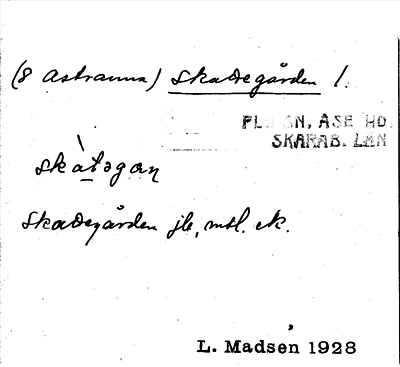 (8 Astranna) Skadegården 1.
SN, ASE HD.
SKARAB. LÄN
skàtəgan
Skadegården jb, mtl. ek.
L. Madsen 1928